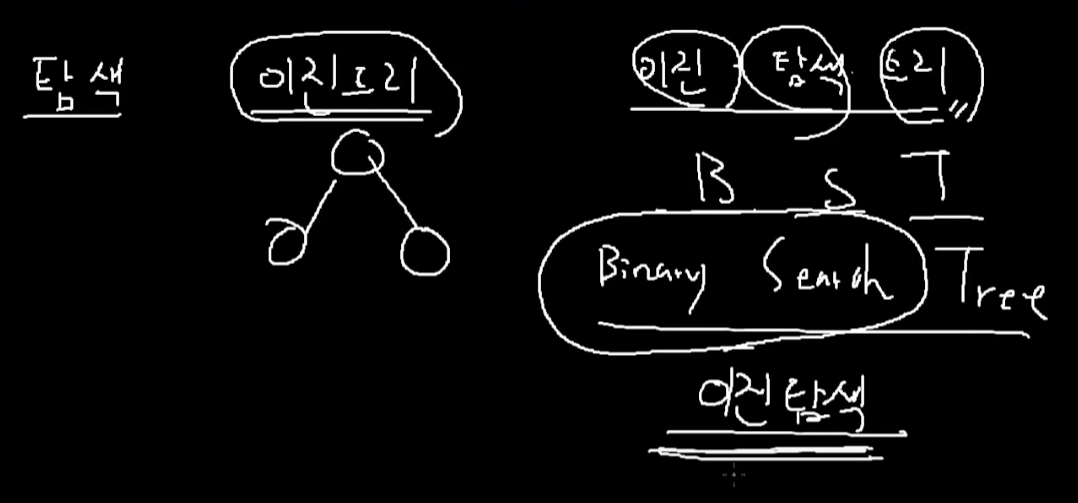 탐색 이진트리 이진 탐색 트리
B S T
Binary Search Tree
이진탐색